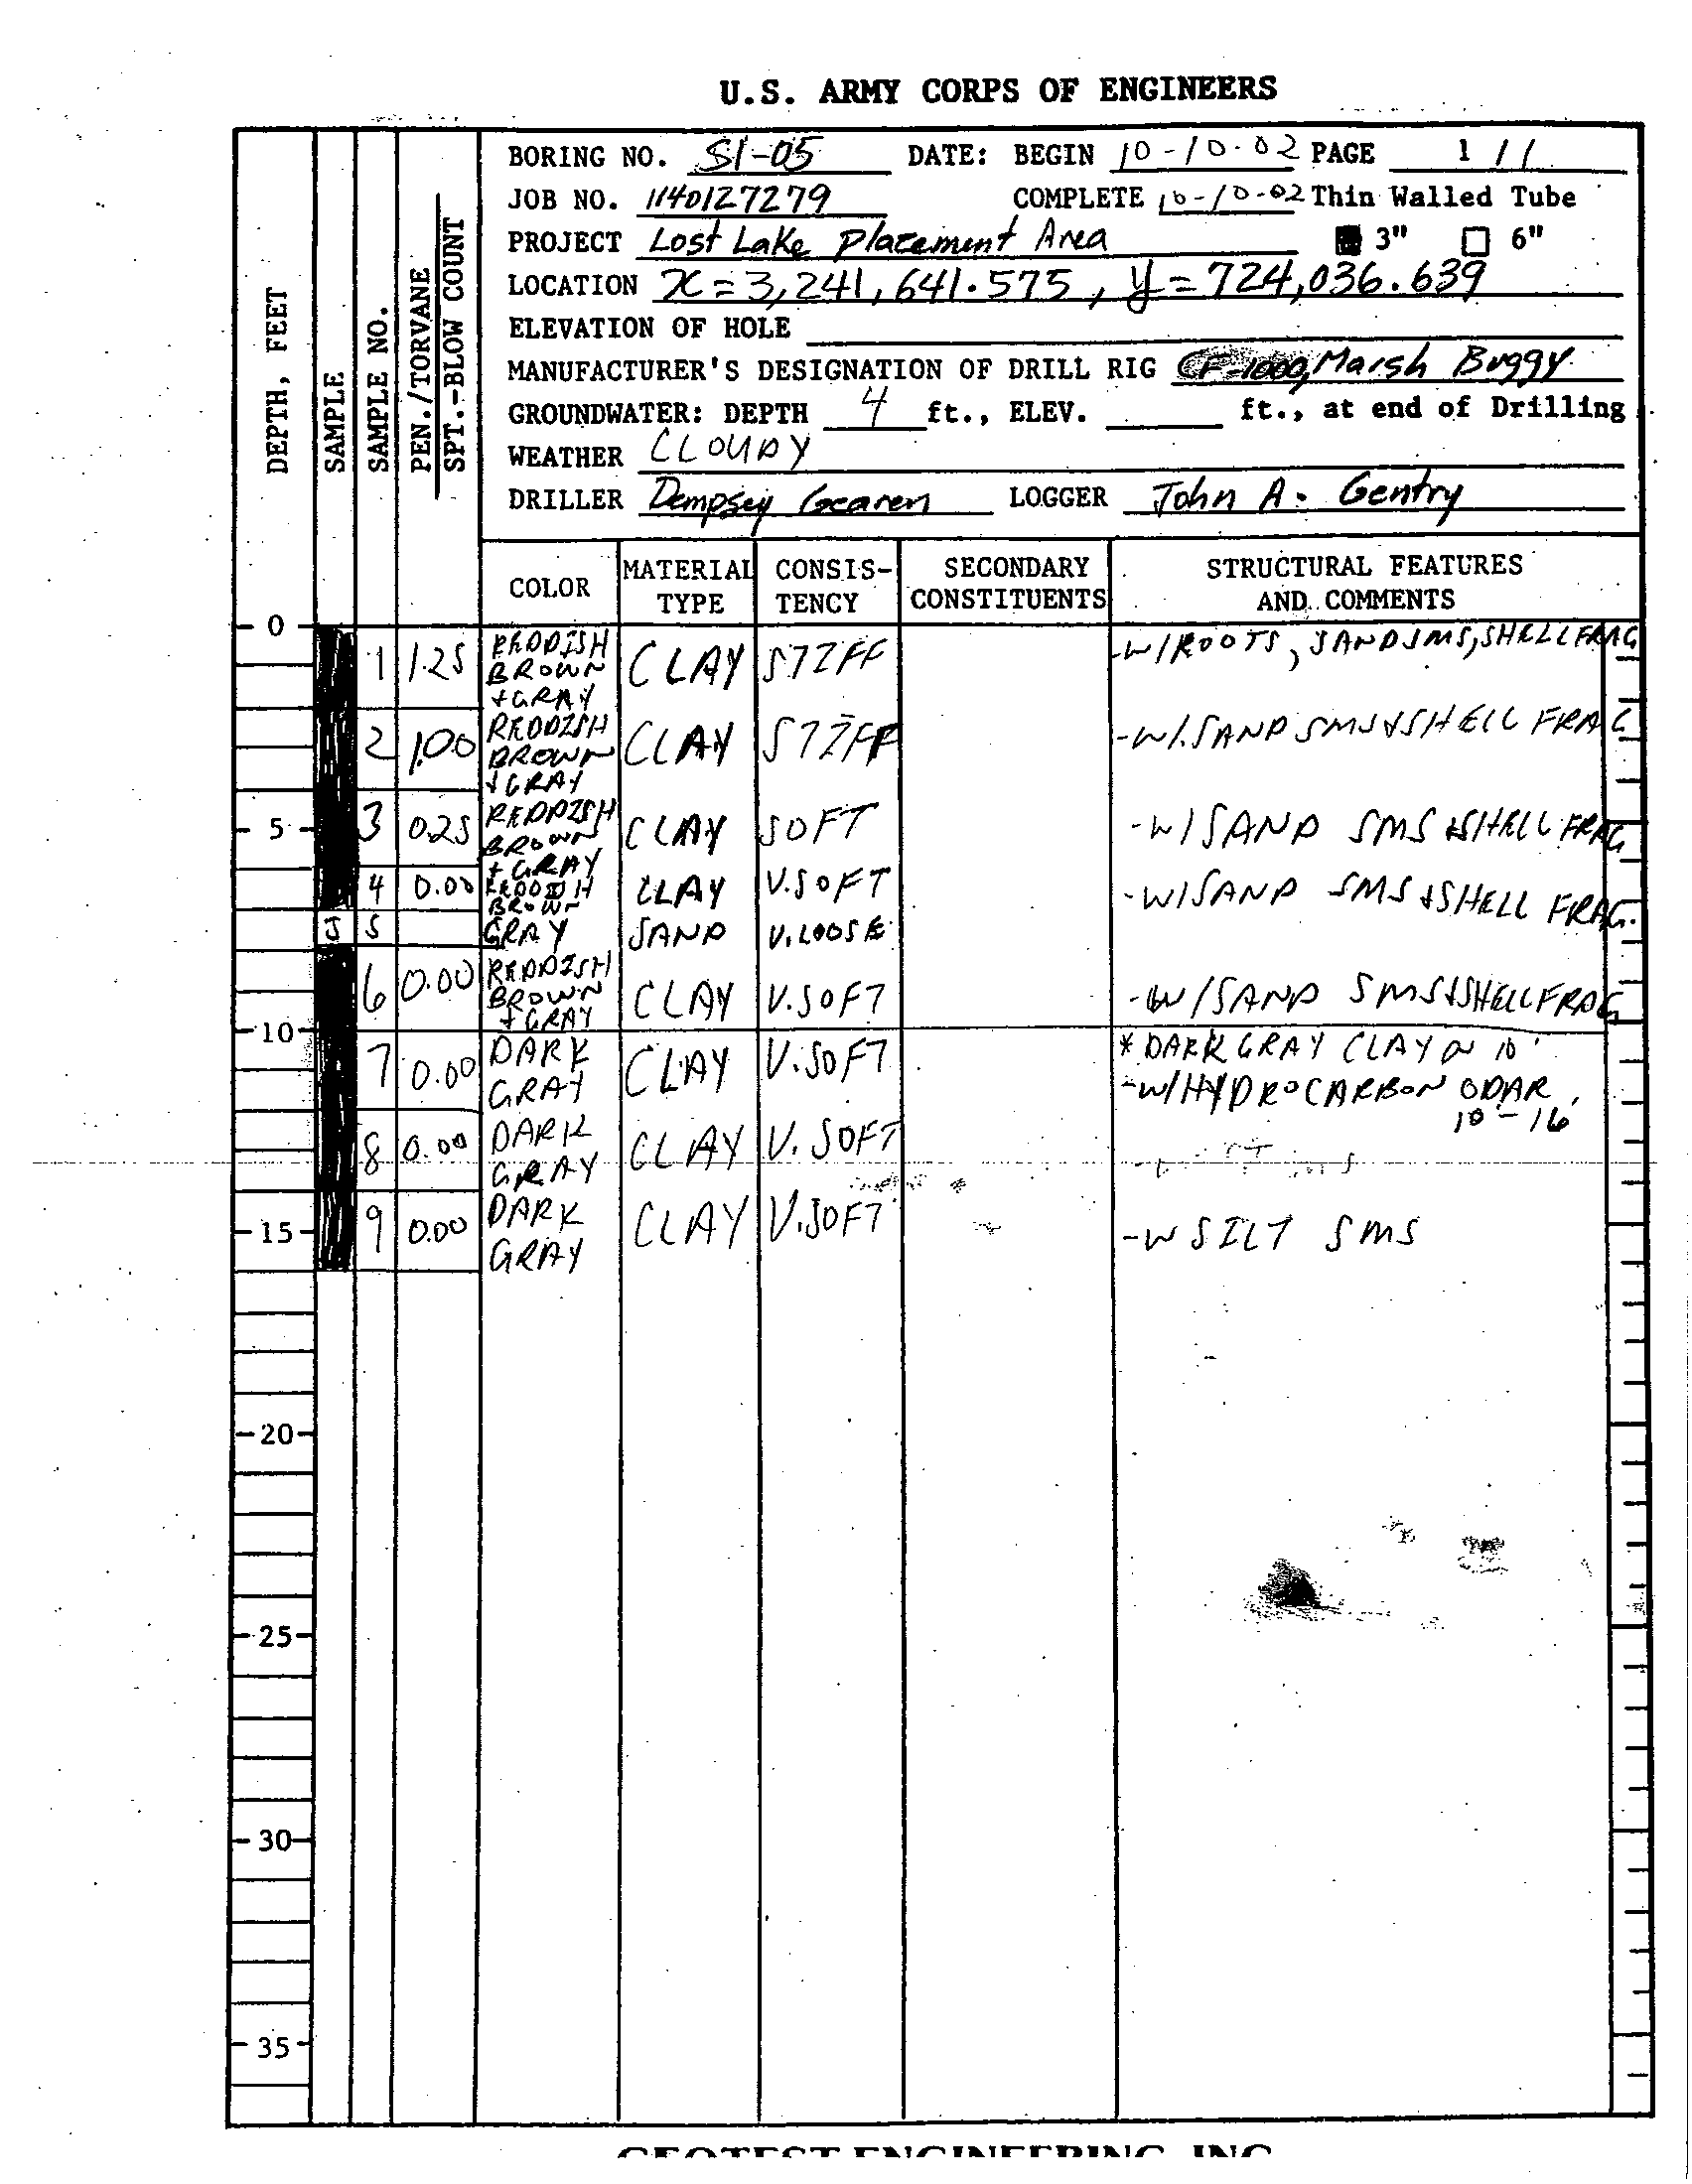 U.S. ARMY CORPS OF ENGINEERS
BORING NO. SI-05 DATE: BEGIN 10-10-02 PAGE 1 / 1
JOB NO. 1140127279 COMPLETE 10-10-02 Thin Walled Tube
PROJECT Lost Lake Placement Area 3" 6"
LOCATION x = 3,241,641.575, y = 724,036.639
ELEVATION OF HOLE
MANUFACTURER'S DESIGNATION OF DRILL RIG CF-1000, Marsh Buggy
GROUNDWATER: DEPTH 4 ft., ELEV. ft., at end of Drilling
WEATHER CLOUDY
DRILLER Dempsey Gearen LOGGER John A. Gentry
DEPTH, FEET
SAMPLE
SAMPLE NO.
PEN./TORVANE
SPT.-BLOW COUNT
COLOR MATERIAL TYPE CONSIS-TENCY SECONDARY CONSTITUENTS STRUCTURAL FEATURES AND COMMENTS
0
1 1.25 REDDISH BROWN + GRAY CLAY STIFF -W/ROOTS, SAND SMS, SHELL FRAG
2 1.00 REDDISH BROWN + GRAY CLAY STIFF -W/SAND SMS + SHELL FRAG
5
3 0.25 REDDISH BROWN + GRAY CLAY SOFT -W/SAND SMS + SHELL FRAG
4 0.00 REDDISH BROWN CLAY V.SOFT -W/SAND SMS + SHELL FRAG.
J 5 GRAY SAND V.LOOSE
6 0.00 REDDISH BROWN + GRAY CLAY V.SOFT -W/SAND SMS + SHELL FRAG
10
7 0.00 DARK GRAY CLAY V.SOFT * DARK GRAY CLAY @ 10'
-W/HYDROCARBON ODAR
10'-16'
8 0.00 DARK GRAY CLAY V.SOFT
15
9 0.00 DARK GRAY CLAY V.SOFT -W SILT SMS
20
25
30
35
GEOTEST ENGINEERING, INC